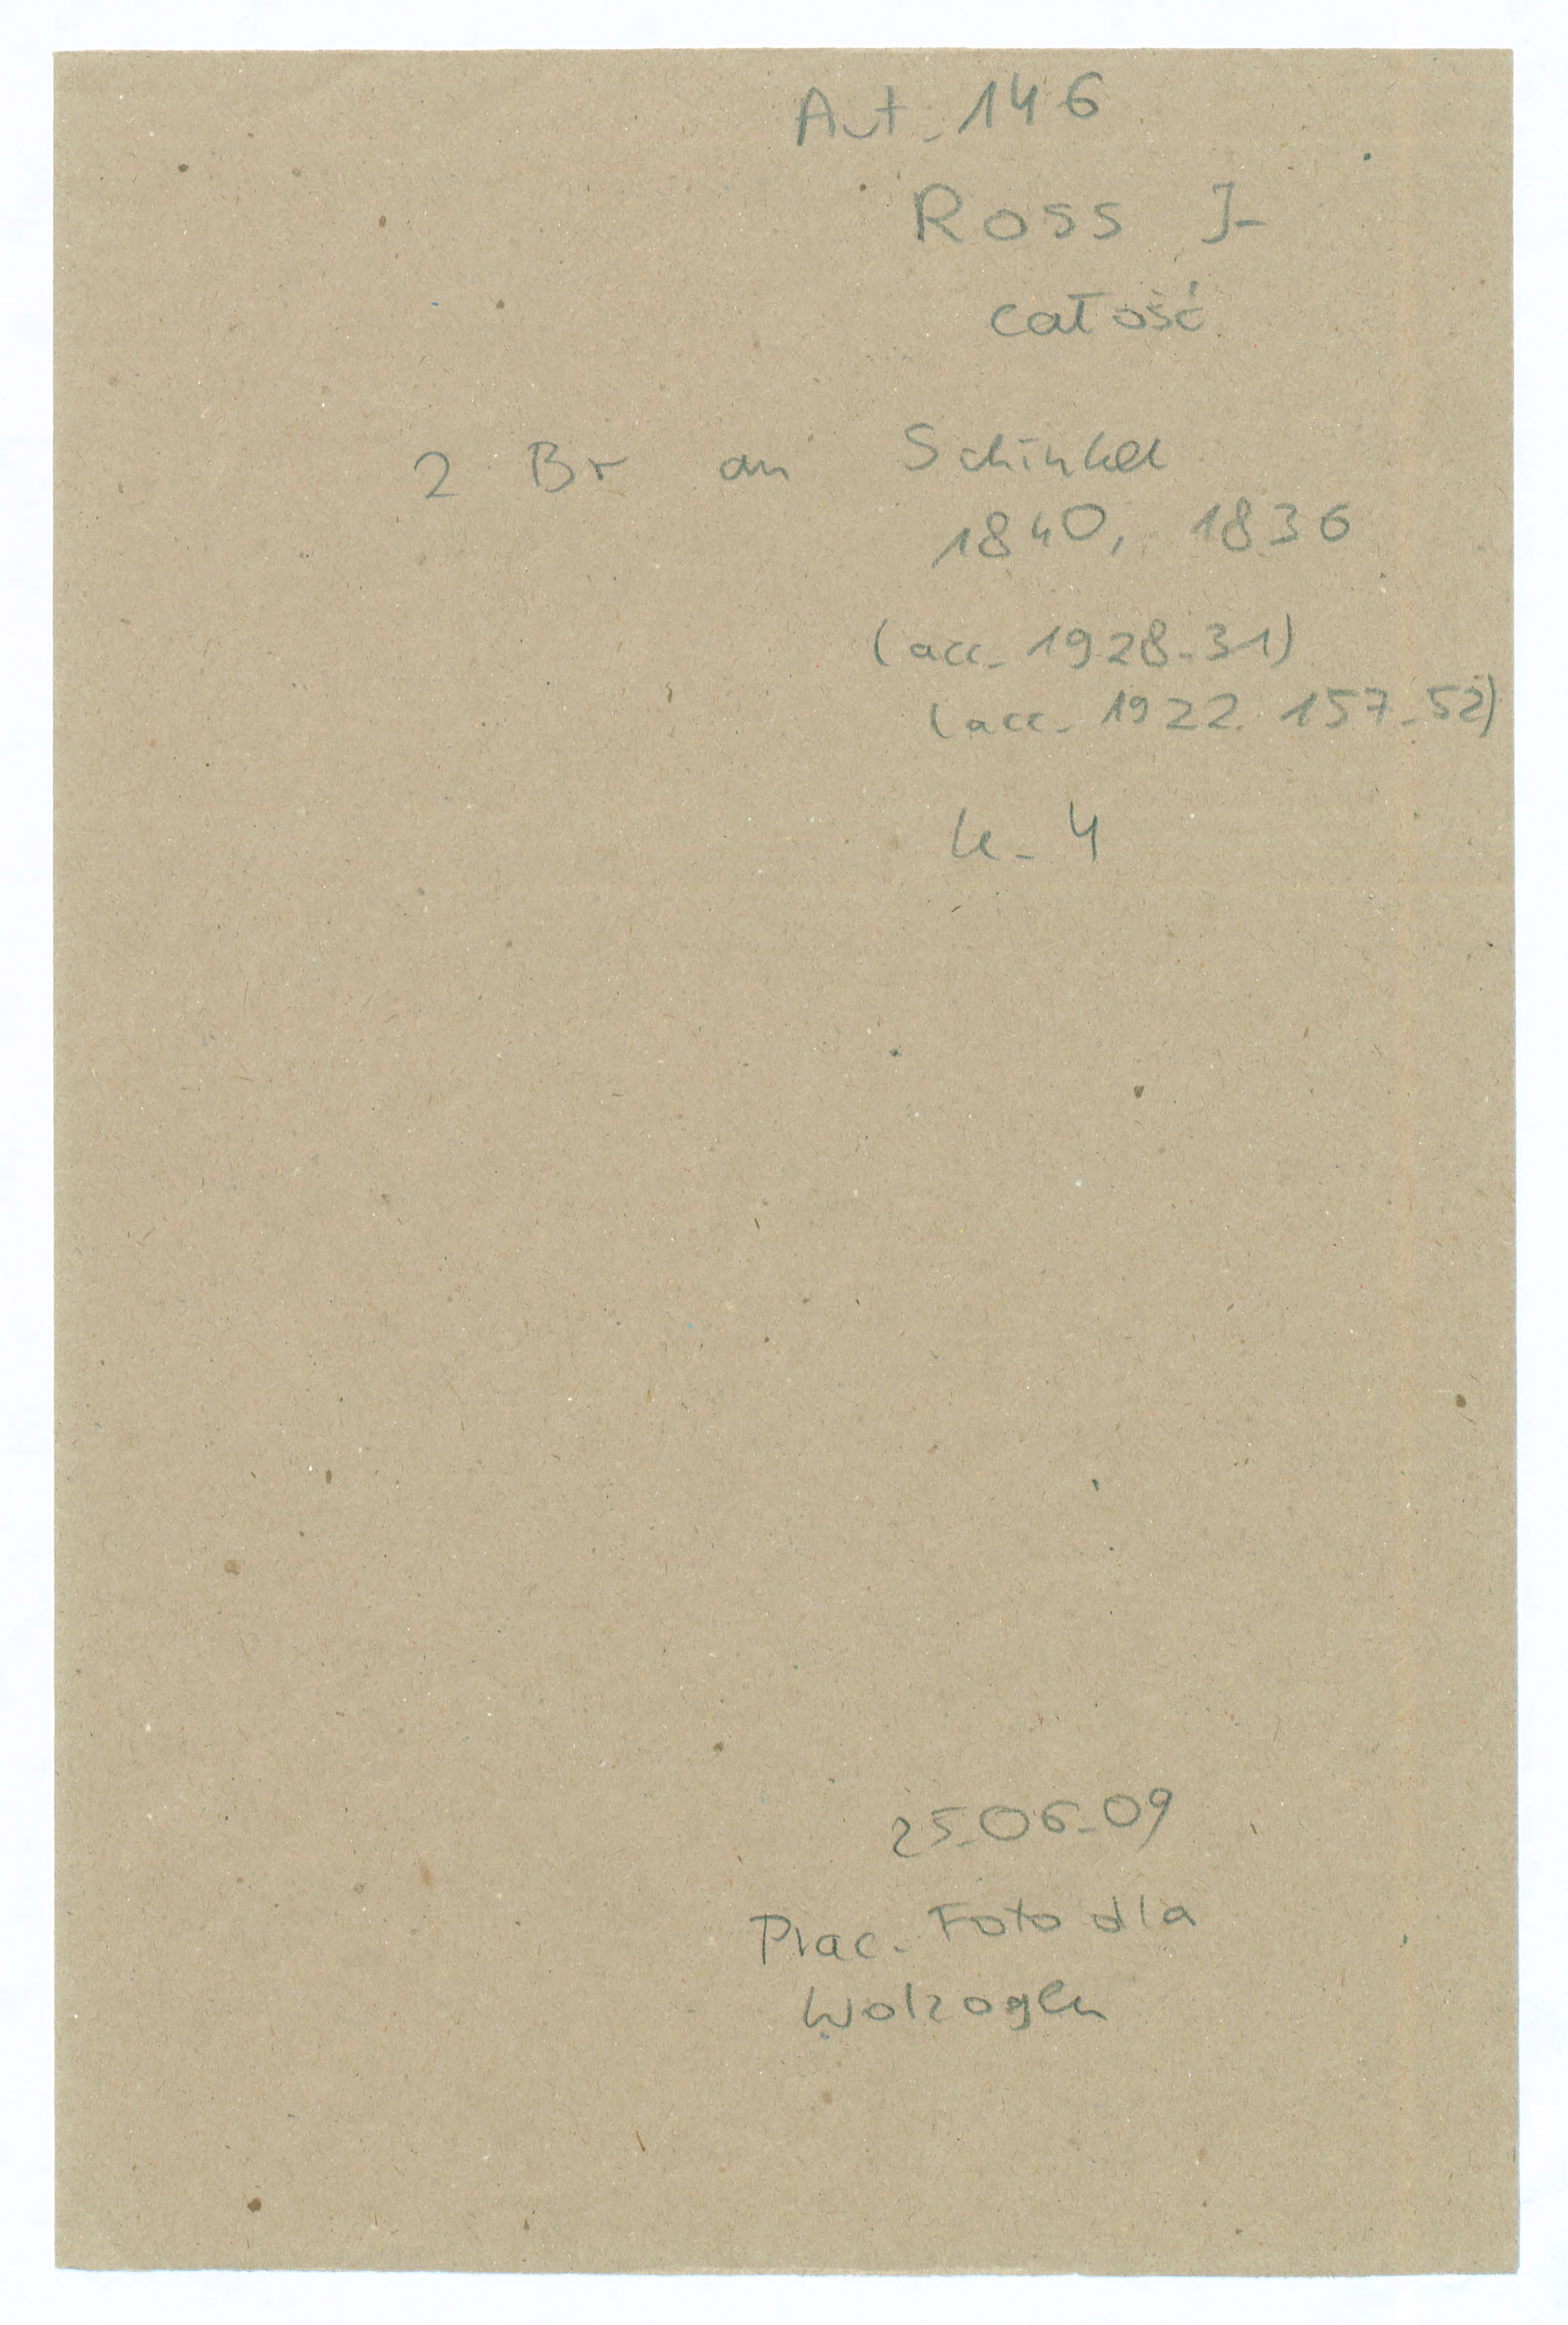 Aut. 146
Ross J.
całość
2 Br an Schinkel
1840, 1836
(acc. 1928.31)
(acc. 1922. 157.52)
k. 4
25.06.09
Prac. Foto dla
Wolzogen